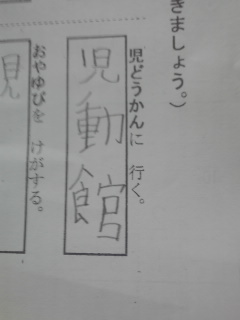 きましょう。）
児どうかんに 行く。
児動館
おやゆびを けがする。